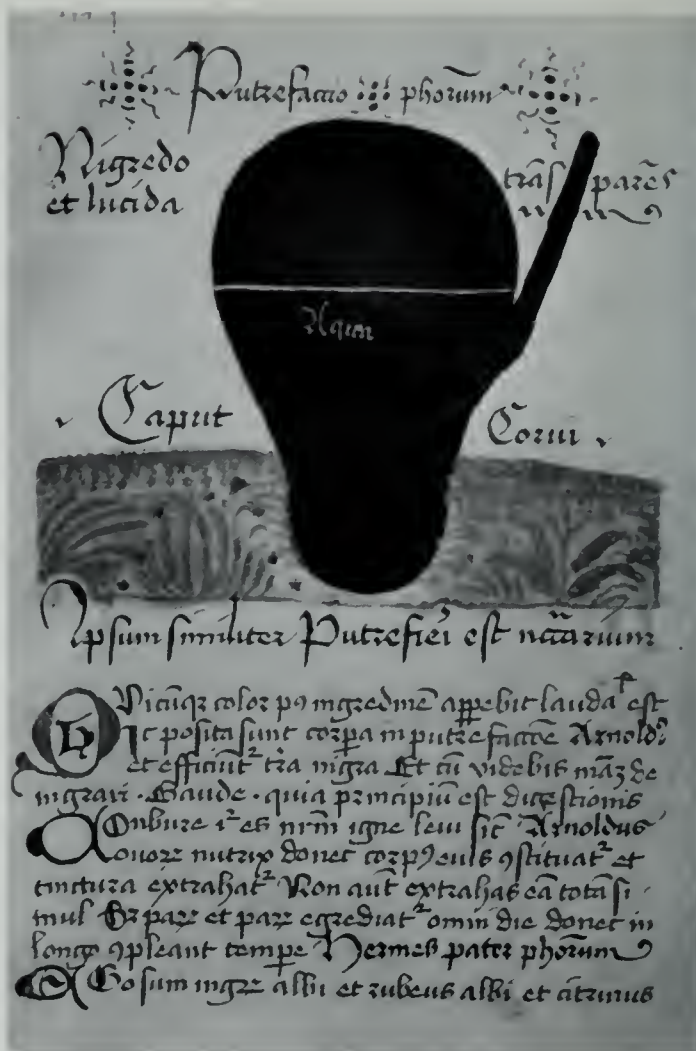 Putrefactio phorum
Nigredo
et lucida
trās parēs
Aqua
Caput Corui
Ipsum similiter Putrefieri est
Vicūqz color pꝰ nigredinē appebit laudaᵗ est
ic posita sunt corpa in putrefactōe Arnoldꝰ
et efficiūt tra nigra Et cū videbis māz de
nigrari · Gaude · quia principiū est digestionis
es nrm igne leui sic Arnoldus
nutrix donec constituat et
tinctura extrahat Non aut extrahas eā totā si
mul et egrediat omni die donec in
longo ꝯpleant tempe Hermes pater phorum
Ego sum nigr albi et rubeus albi et citrinus